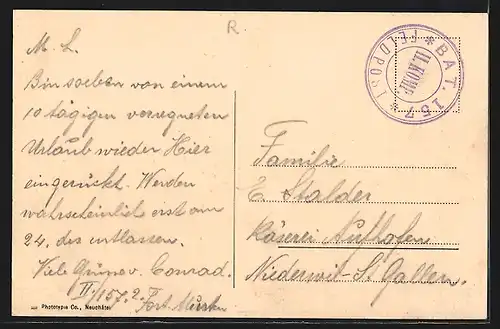 R
M. L.
Bin soeben von einem
10 tägigen verregneten
Urlaub wieder Hier
eingerückt. Werden
wahrscheinlich erst am
24. des entlassen.
Viele Grüsse v. Conrad.
II/157. 2. Fort. Murten
Phototypie Co., Neuchâtel
* BAT. 157 * FELDPOST
II. KOMP.
Familie
E. Stalder
Käserei Aufhofen
Niederwil - St. Gallen.